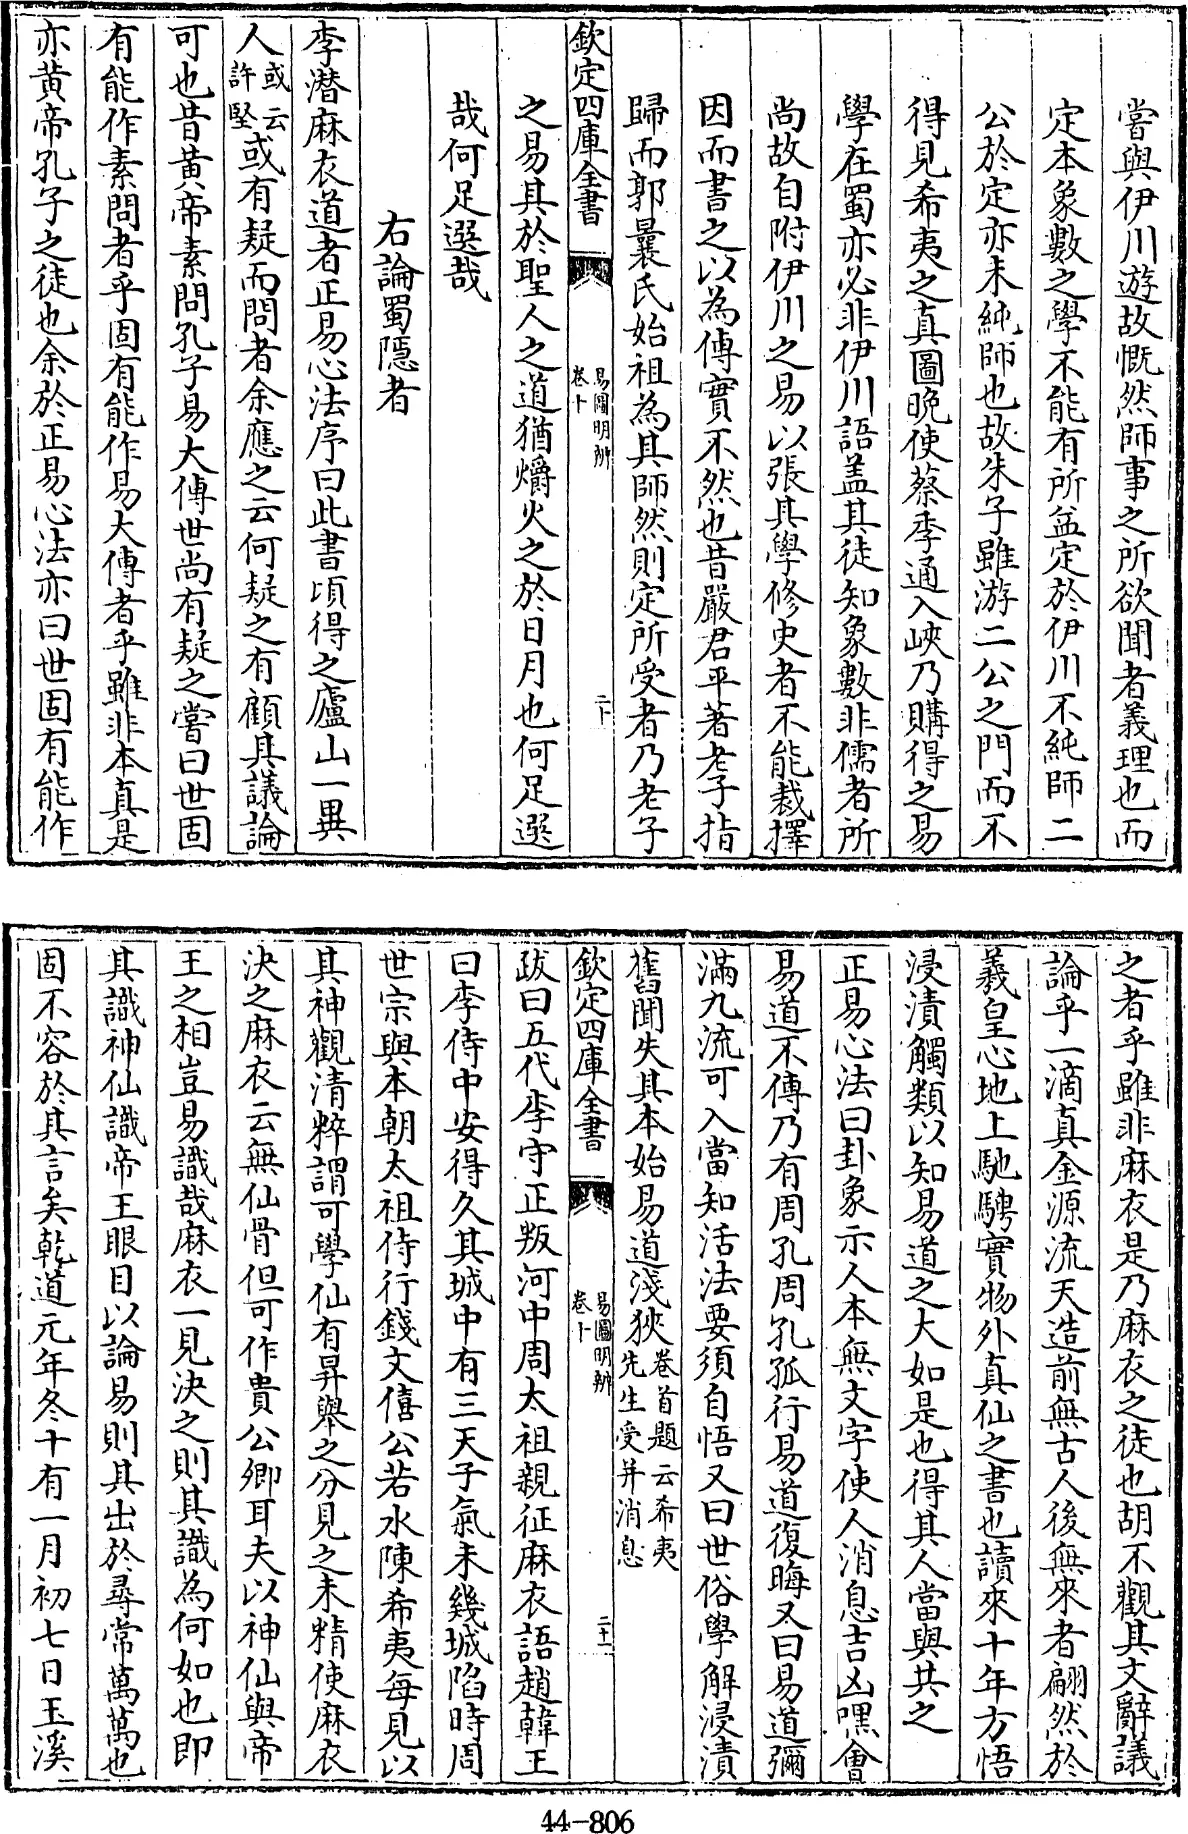 嘗與伊川遊故慨然師事之所欲聞者義理也而
定本象數之學不能有所益定於伊川不純師二
公於定亦未純師也故朱子雖游二公之門而不
得見希夷之真圖晚使蔡季通入峽乃購得之易
學在蜀亦必非伊川語盖其徒知象數非儒者所
尚故自附伊川之易以張其學修史者不能裁擇
因而書之以為傳實不然也昔嚴君平著老子指
歸而郭曩氏始祖為其師然則定所受者乃老子
欽定四庫全書
易圖明辨
卷十
二十
之易其於聖人之道猶爝火之於日月也何足選
哉何足選哉
右論蜀隱者
李潛麻衣道者正易心法序曰此書頃得之廬山一異
人或云許堅或有疑而問者余應之云何疑之有顧其議論
可也昔黃帝素問孔子易大傳世尚有疑之嘗曰世固
有能作素問者乎固有能作易大傳者乎雖非本真是
亦黃帝孔子之徒也余於正易心法亦曰世固有能作
之者乎雖非麻衣是乃麻衣之徒也胡不觀其文辭議
論乎一滴真金源流天造前無古人後無來者翩然於
羲皇心地上馳騁實物外真仙之書也讀來十年方悟
浸漬觸類以知易道之大如是也得其人當與共之
正易心法曰卦象示人本無文字使人消息吉凶嘿會
易道不傳乃有周孔周孔孤行易道復晦又曰易道彌
滿九流可入當知活法要須自悟又曰世俗學解浸漬
舊聞失其本始易道淺狹卷首題云希夷先生受并消息
欽定四庫全書
易圖明辨
卷十
二十一
跋曰五代李守正叛河中周太祖親征麻衣語趙韓王
曰李侍中安得久其城中有三天子氣未幾城陷時周
世宗與本朝太祖侍行錢文僖公若水陳希夷每見以
其神觀清粹謂可學仙有昇舉之分見之未精使麻衣
決之麻衣云無仙骨但可作貴公卿耳夫以神仙與帝
王之相豈易識哉麻衣一見決之則其識為何如也即
其識神仙識帝王眼目以論易則其出於尋常萬萬也
固不容於其言矣乾道元年冬十有一月初七日玉溪
44-806